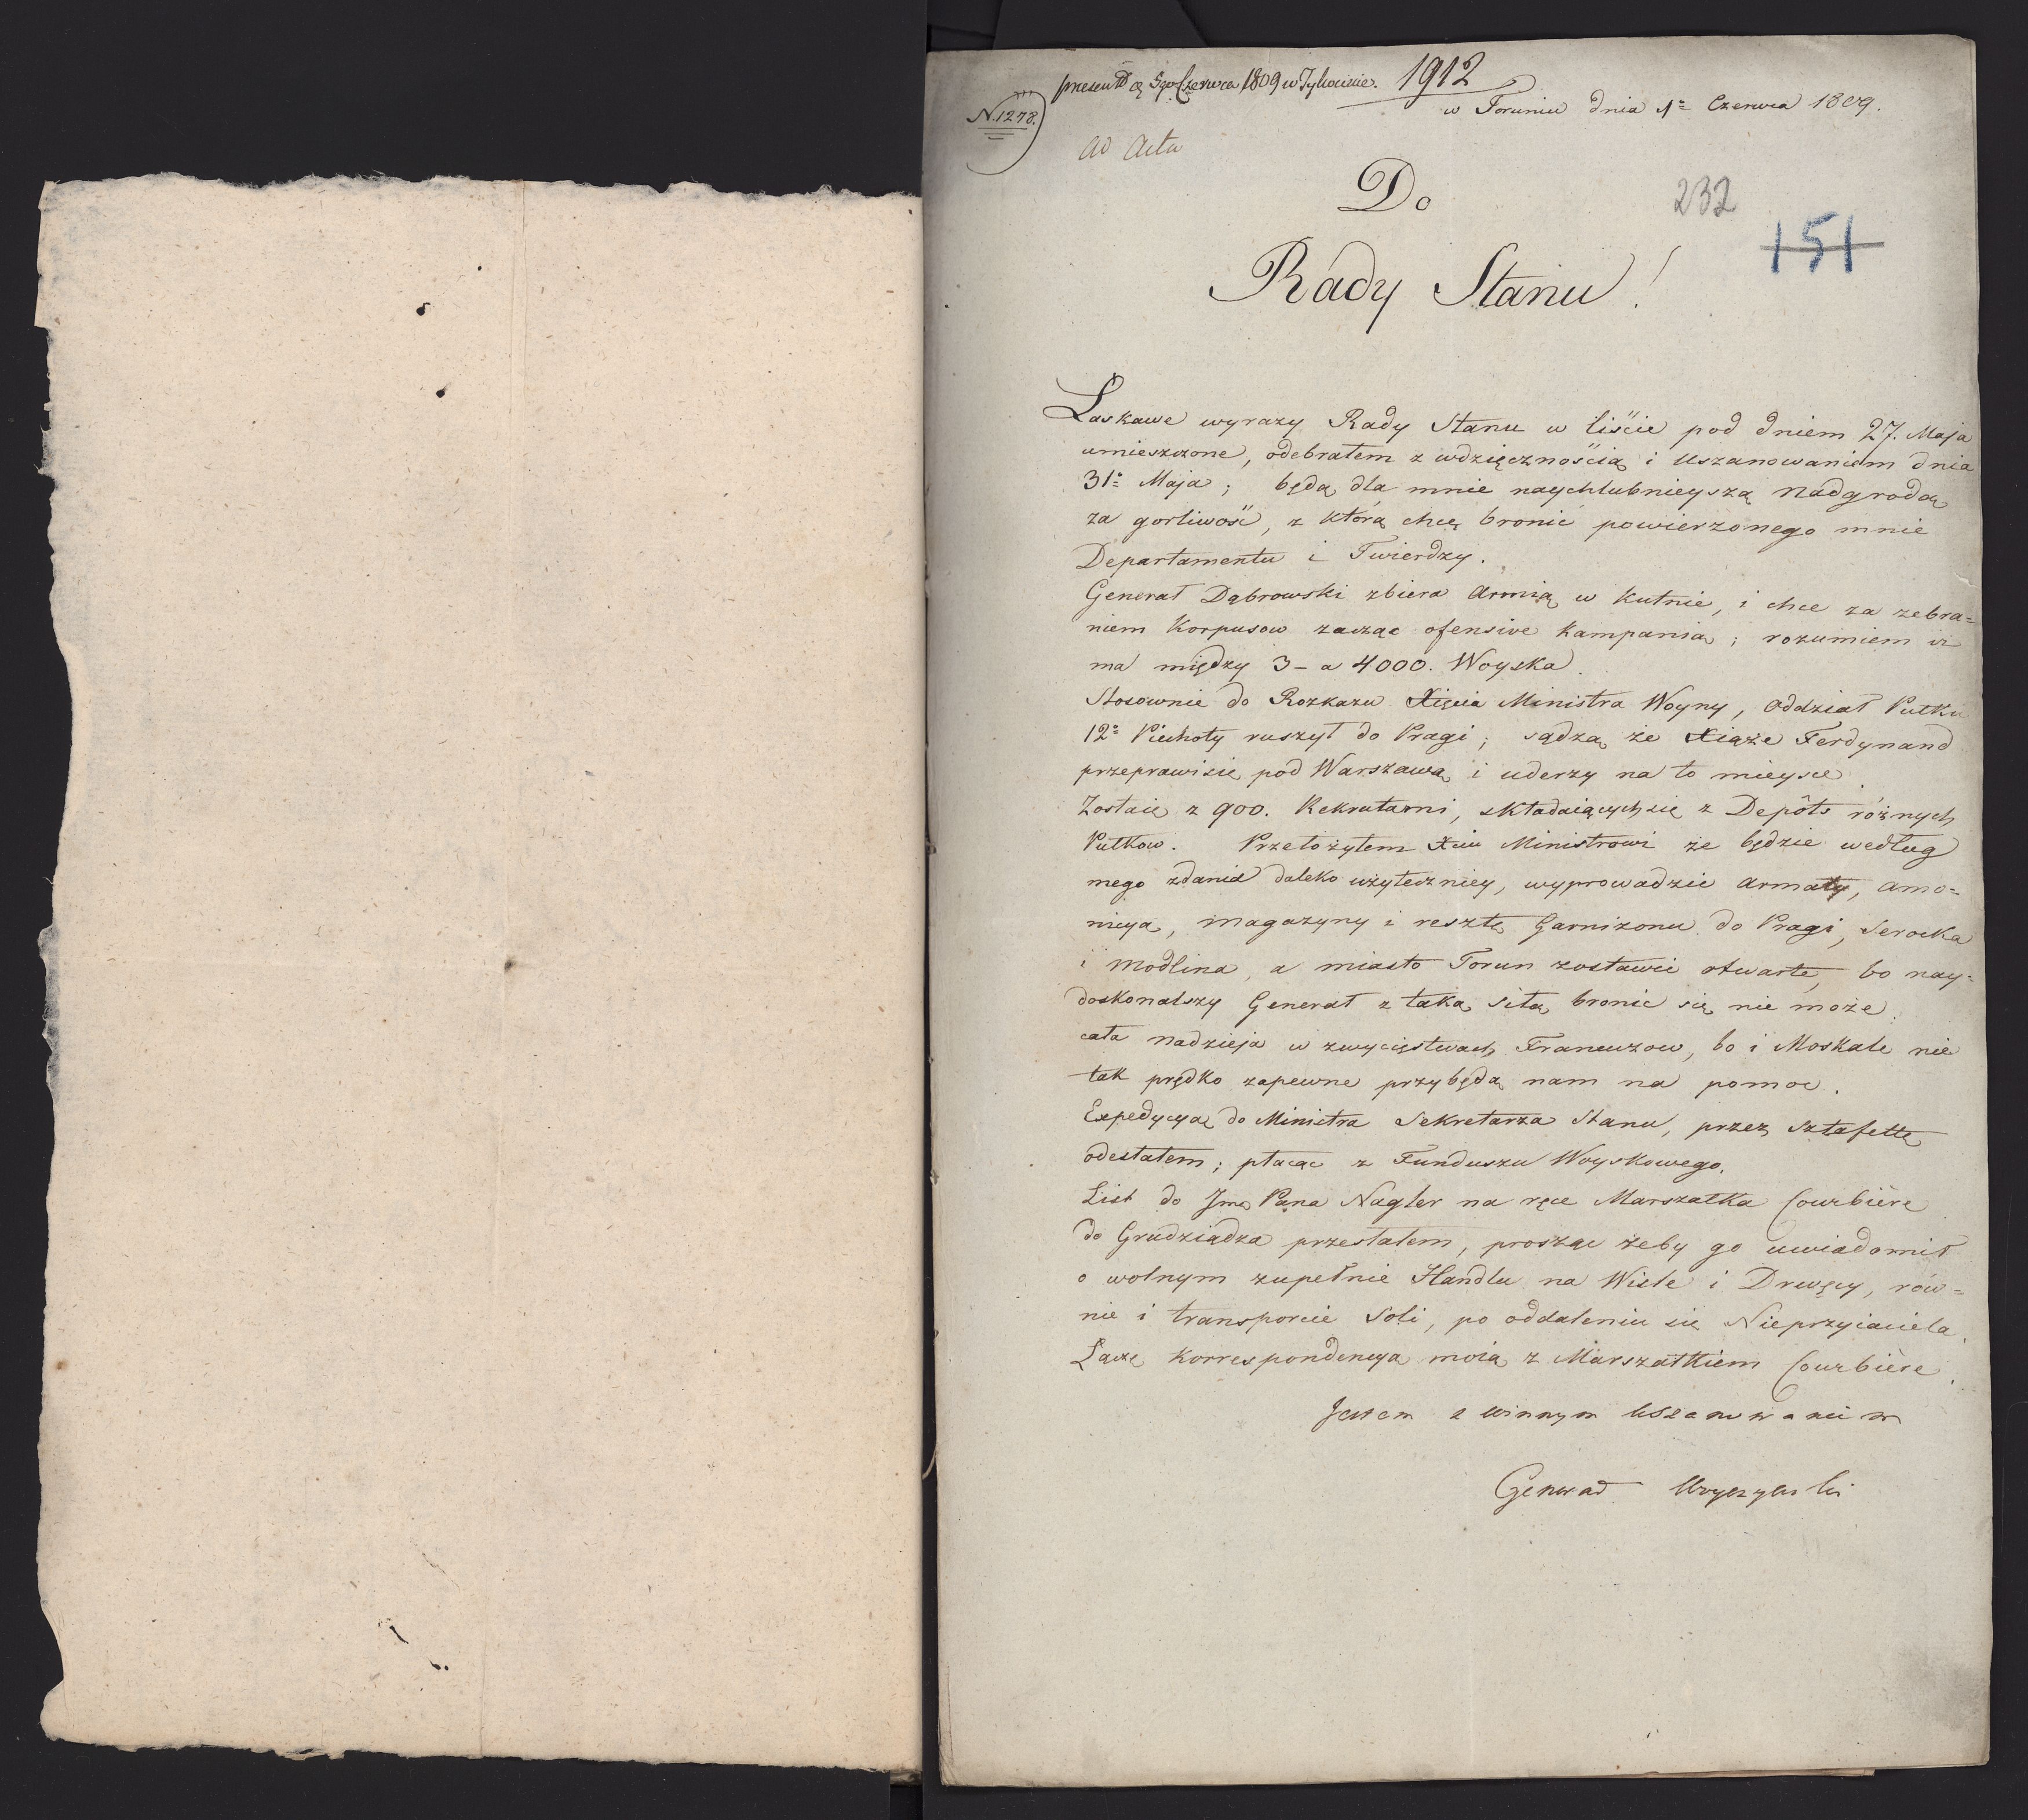 1912
w Toruniu dnia 1º Czerwca 1809.
N. 1278.
ad Acta
Do
232
151
Rady Stanu!
Łaskawe wyrazy Rady Stanu w liście pod dniem 27. Maja
umieszczone, odebrałem z wdzięcznością i uszanowaniem dnia
31º Maja; będą dla mnie naychlubnieyszą nadgrodą
za gorliwość, z którą chcę bronić powierzonego mnie
Departamentu i Twierdzy.
Generał Dąbrowski zbiera Armią w Kutnie, i chce za zebra=
niem Korpusow zacząc ofensive Kampanią; rozumiem iż
ma między 3 - a 4000. Woyska.
Stosownie do Rozkazu Xięcia Ministra Woyny, oddział Pułku
12º Piechoty ruszył do Pragi; sądzą że Xiąże Ferdynand
przeprawi się pod Warszawą i uderzy na to mieysce.
Zostaię z 900. Rekrutami, składaiącychsię z Depôts różnych
Pułkow. Przełożyłem Xciu Ministrowi że będzie według
mego zdania daleko użyteczniey, wyprowadzić armaty, amo=
nicyą, magazyny i resztę Garnizonu do Pragi, Serocka
i Modlina, a miasto Torun zostawić otwarte, bo nay=
doskonalszy Generał z taką siłą bronić się nie może.
cała nadzieja w zwycięstwach Francuzow, bo i Moskale nie
tak prędko zapewne przybędą nam na pomoc.
Expedycyą do Ministra Sekretarza Stanu, przez Sztafettę
odesłałem; płacąc z Funduszu Woyskowego.
List do Jmć Pana Nagler na ręce Marszałka Courbière
do Grudziądza przesłałem, prosząc żeby go uwiadomił
o wolnym zupełnie Handlu na Wiśle i Drwęcy, rów=
nie i transporcie Soli, po oddaleniu się Nieprzyiaciela.
Łączę Korrespondencyą moią z Marszałkiem Courbière.
Jestem z winnym uszanowaniem
Generał Woyczyński